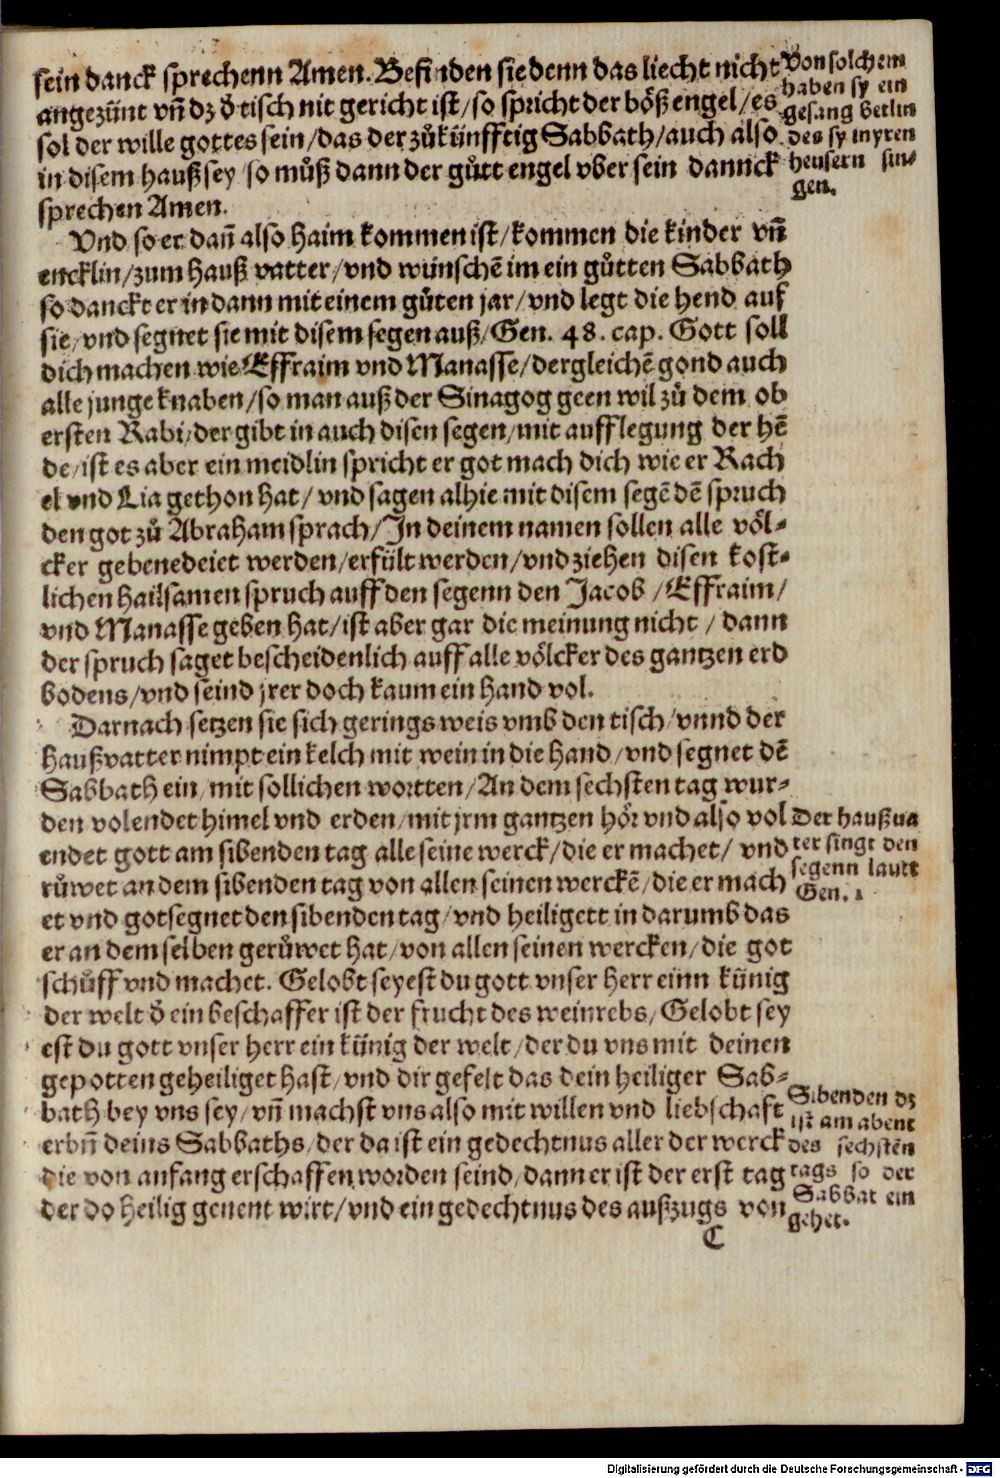 sein danck sprechenn Amen. Befinden sie denn das liecht nicht
angezünt vñ dz d̕ tisch nit gericht ist/ so spricht der böß engel/ es
sol der wille gottes sein/ das der zůkünfftig Sabbath/ auch also
in disem hauß sey so můß dann der gůtt engel vber sein dannck
sprechen Amen.
Von solchem
haben sy ein
gesang
des sy in yren
heusern sin⸗
gen.
Vnd so er dañ also haim kommen ist/ kommen die kinder vñ
encklin/ zum hauß vatter/ vnd wünschē im ein gůtten Sabbath
so danckt er in dann mit einem gůten jar/ vnd legt die hend auf
sie/ vnd segnet sie mit disem segen auß/ Gen. 48. cap. Gott soll
dich machen wie Effraim vnd Manasse/ dergleichē gond auch
alle junge knaben/ so man auß der Sinagog geen wil zů dem ob
ersten Rabi/ der gibt in auch disen segen/ mit aufflegung der hē
de/ ist es aber ein meidlin spricht er got mach dich wie er Rach
el vnd Lia gethon hat/ vnd sagen alhie mit disem segē dē spruch
den got zů Abraham sprach/ In deinem namen sollen alle völ⸗
cker gebenedeiet werden/ erfült werden/ vnd ziehen disen kost⸗
lichen hailsamen spruch auff den segenn den Jacob/ Effraim/
vnd Manasse geben hat/ ist aber gar die meinung nicht/ dann
der spruch saget bescheidenlich auff alle völcker des gantzen erd
bodens/ vnd seind jrer doch kaum ein hand vol.
Darnach setzen sie sich gerings weis vmb den tisch/ vnnd der
haußvatter nimpt ein kelch mit wein in die hand/ vnd segnet dē
Sabbath ein/ mit sollichen wortten/ An dem sechsten tag wur⸗
den volendet himel vnd erden/ mit jrm gantzen hör vnd also vol
endet gott am sibenden tag alle seine werck/ die er machet/ vnd
růwet an dem sibenden tag von allen seinen werckē/ die er mach
et vnd got segnet den sibenden tag/ vnd heiligett in darumb das
er an dem selben gerůwet hat/ von allen seinen wercken/ die got
schůff vnd machet. Gelobt seyest du gott vnser herr einn künig
der welt d̕ ein beschaffer ist der frucht des weinrebs/ Gelobt sey
est du gott vnser herr ein künig der welt/ der du vns mit deinen
gepotten geheiliget hast/ vnd dir gefelt das dein heiliger Sab⸗
bath bey vns sey/ vñ machst vns also mit willen vnd liebschaft
erbñ deins Sabbaths/ der da ist ein gedechtnus aller der werck
die von anfang erschaffen worden seind/ dann er ist der erst tag
der do heilig genent wirt/ vnd ein gedechtnus des außzugs von
Der haußva
ter singt den
segenn lautt
Gen. 1
Sibenden dz
ist am abent
des sechstēn
tags so der
Sabbat ein
gehet.
C
Digitalisierung gefördert durch die Deutsche Forschungsgemeinschaft - DFG